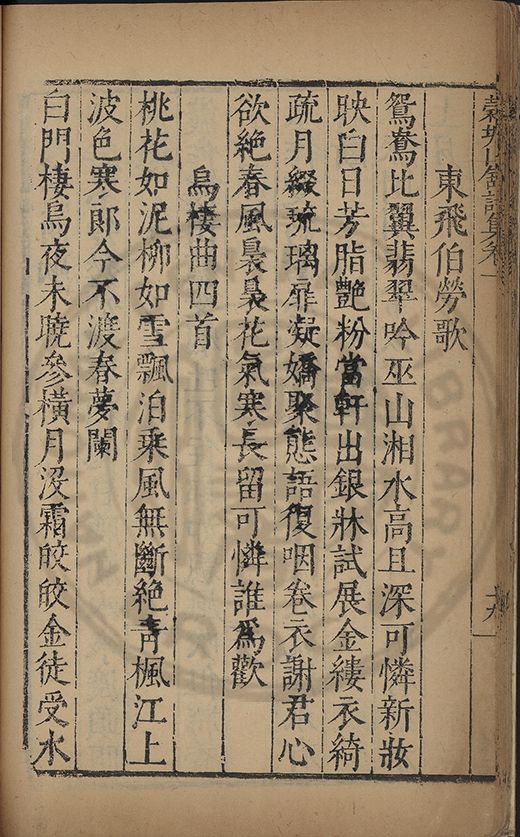 東飛伯勞歌
鴛鴦比翼翡翠吟巫山湘水高且深可憐新妝
映白日芳脂艷粉當軒出銀牀試展金縷衣綺
疏月綴琉璃扉凝嬌聚態語復咽卷衣謝君心
欲絶春風裊裊花氣寒長留可憐誰爲歡
烏棲曲四首
桃花如泥柳如雪飄泊乘風無斷絶靑楓江上
波色寒郎今不渡春夢闌
白門棲烏夜未曉參橫月沒霜皎皎金徒受水